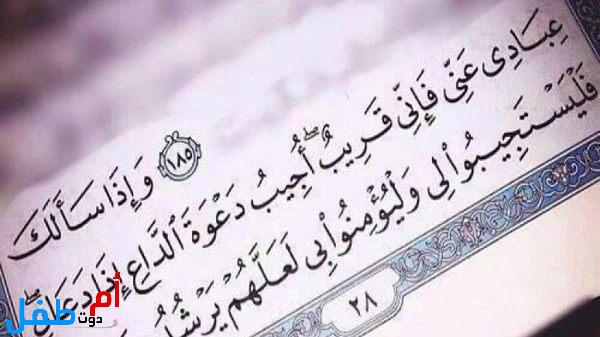 ۝١٨٥ وَإِذَا سَأَلَكَ
عِبَادِى عَنِّى فَإِنِّى قَرِيبٌ ۖ أُجِيبُ دَعْوَةَ ٱلدَّاعِ إِذَا دَعَانِ ۖ
فَلْيَسْتَجِيبُوا۟ لِى وَلْيُؤْمِنُوا۟ بِى لَعَلَّهُمْ
٢٨
أم
دوت
طفل